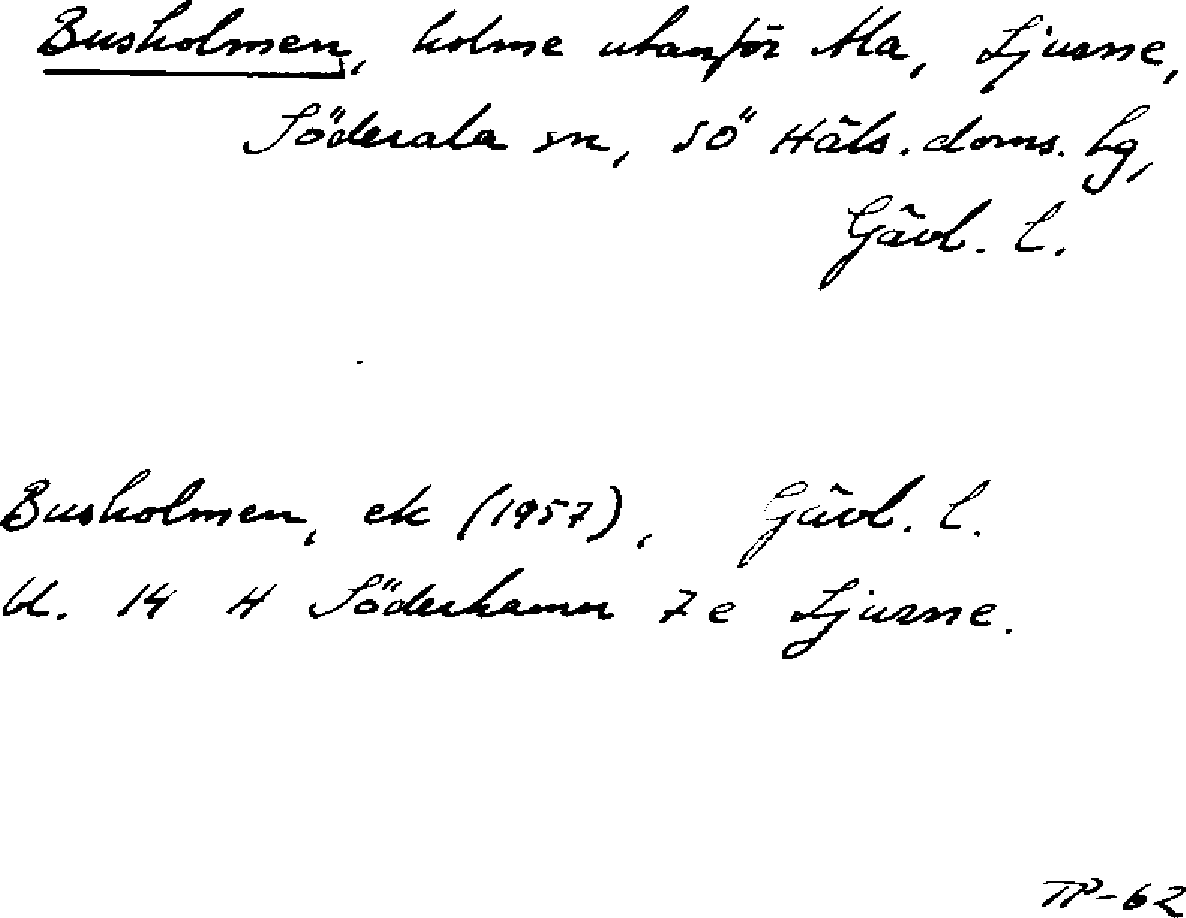 Busholmen, holme utanför Ala, Ljusne,
Söderala sn, SÖ Häls. doms. hg,
Gävl. l.
Busholmen, ek (1957), Gävl. l.
bl. 14 H Söderhamn 7 e Ljusne.
TP-62